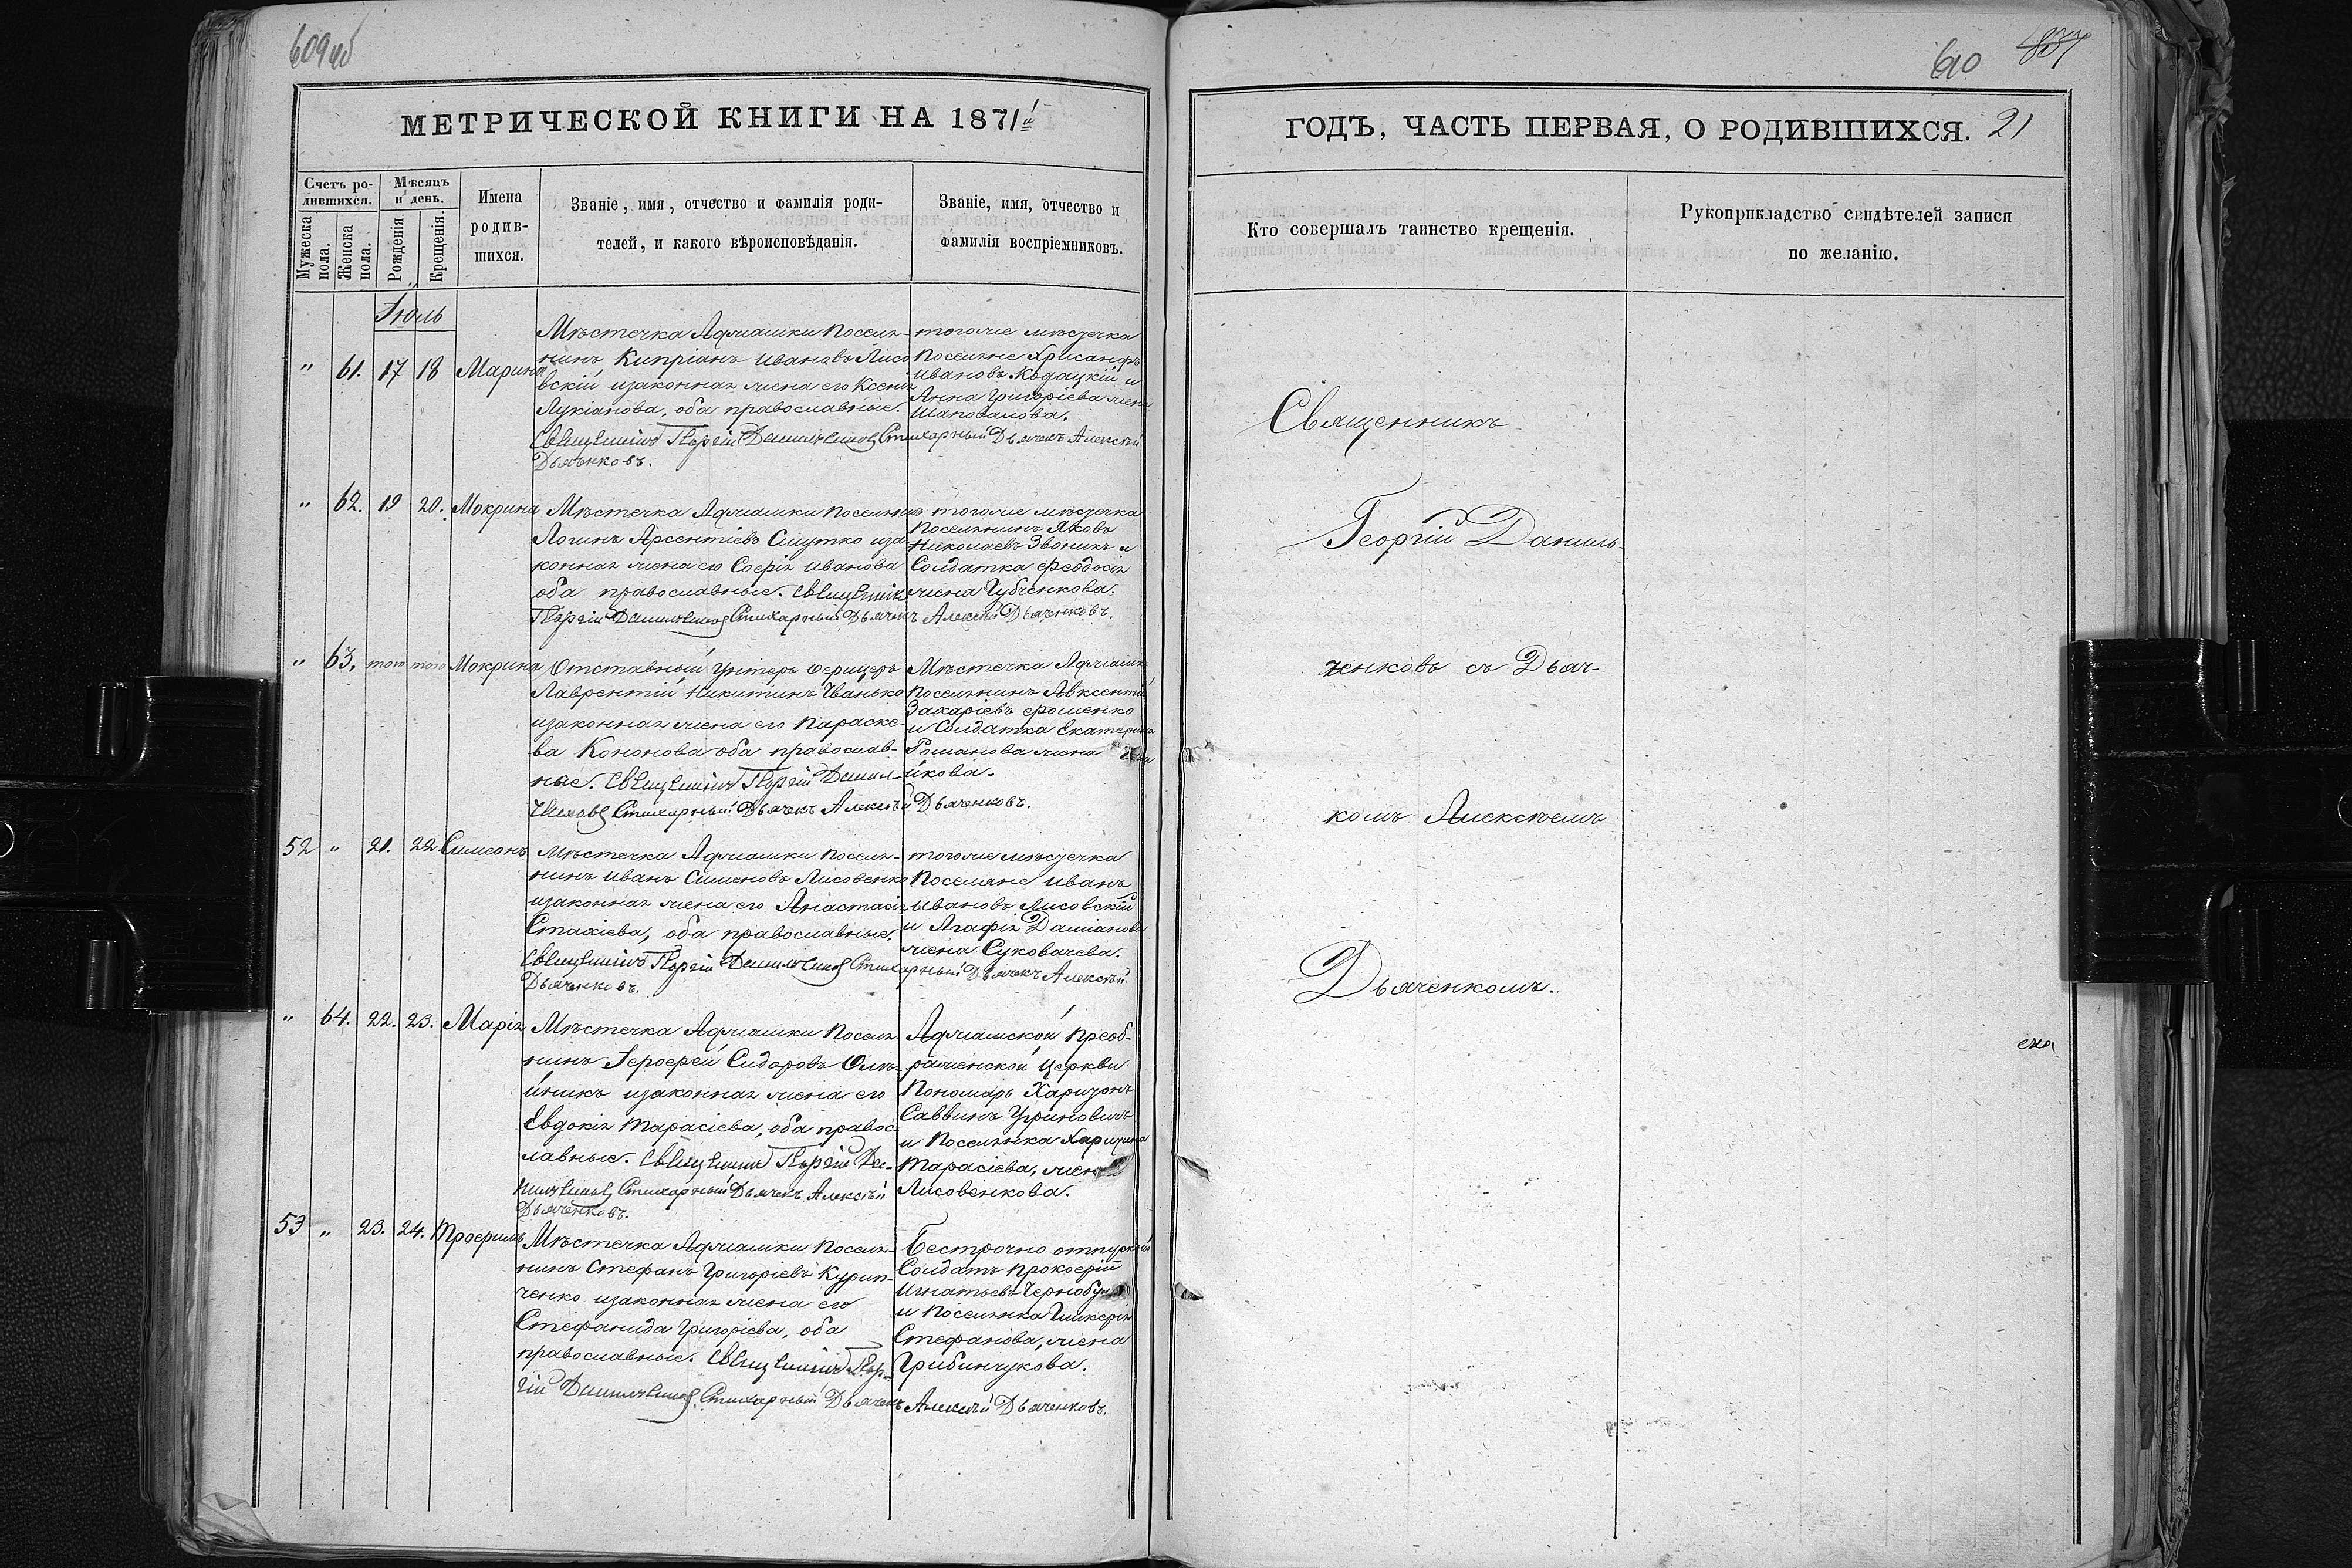 609 об
МЕТРИЧЕСКОЙ КНИГИ НА 1871й
Счетъ ро-
дившихся.
Мѣсяцъ
и день.
Мужеска
пола.
Женска
пола.
Рожденія.
Крещенія.
Имена
родив-
шихся.
Званіе, имя, отчество и фамилія роди-
телей, и какого вѣроисповѣданія.
Званіе, имя, отчество и
фамилія воспріемниковъ.
Іюль
" 61. 17 18 Марина
Мѣстечка Аджамки поселя-
нинъ Кипріанъ Ивановъ Лисо
вскій изаконная жена его Ксенія
Лукіанова, оба православные.
Священникъ Георгій Данильченковъ Стихарный Дьячекъ Алексѣй
Дьяченковъ.
тогоже мѣстечка
Поселяне Хрисанфъ
Ивановъ Кодацкій и
Анна Григоріева жена
Шаповалова.
" 62. 19 20. Мокрина
Мѣстечка Аджамки поселянинъ
Логинъ Арсентіевъ Смутко иза-
конная жена его Софія Иванова
оба православные. Священникъ
Георгій Данильченковъ Стихарный Дьячекъ Алексѣй Дьяченковъ.
тогоже мѣстечка
Поселянинъ Яковъ
Николаевъ Звоникъ и
Солдатка Феодосія
жена Губченкова.
" 63. того того Мокрина
Отставный Унтеръ Офицеръ
Лаврентій Никитинъ Иванько
изаконная жена его Параске-
ва Кононова оба православ-
ные. Священникъ Георгій Даниль-
ченковъ Стихарный Дьячекъ Алексѣй Дьяченковъ.
Мѣстечка Аджамки
поселянинъ Авксентій
Захаріевъ Фоменко
и Солдатка Екатерина
Романова жена
йкова.
52 " 21. 22. Симеонъ
Мѣстечка Аджамки поселя-
нинъ Иванъ Сименовъ Лисовенко
изаконная жена его Анастасія
Стахіева, оба православные.
Священникъ Георгій Данильченковъ Стихарный Дьячекъ Алексѣй
Дьяченковъ.
тогоже мѣстечка
Поселяне Иванъ
Ивановъ Лисовскій
и Агафія Даміанова
жена Суковачева.
" 64. 22. 23. Марія
Мѣстечка Аджамки Поселя
нинъ Іерофей Сидоровъ Олѣ-
йникъ изаконная жена его
Евдокія Тарасіева, оба правос-
лавные. Священникъ Георгій Да-
нильченковъ Стихарный Дьячекъ Алексѣй
Дьяченковъ.
Аджамской Преоб-
раженской Церкви
Пономарь Харизонъ
Саввинъ Угриновичъ
и Поселянка Харитина
Тарасіева, жена
Лисовенкова.
53 " 23. 24. Трофимъ
Мѣстечка Аджамки Поселя-
нинъ Стефанъ Григоріевъ Курип-
ченко изаконная жена его
Стефанида Григоріева, оба
православные. Священникъ Геор-
гій Данильченковъ Стихарный Дьячекъ Алексѣй Дьяченковъ.
Бестрочно отпускной
Солдатъ Прокофій
Игнатьевъ
и Поселянка Гликерія
Стефанова, жена
Грибинчукова.
610 837
ГОДЪ, ЧАСТЬ ПЕРВАЯ, О РОДИВШИХСЯ. 21
Кто совершалъ таинство крещенія.
Рукоприкладство свидѣтелей записи
по желанію.
Священникъ
Георгій Даниль-
ченковъ съ Дьяч-
комъ Алексѣемъ
Дьяченкомъ.